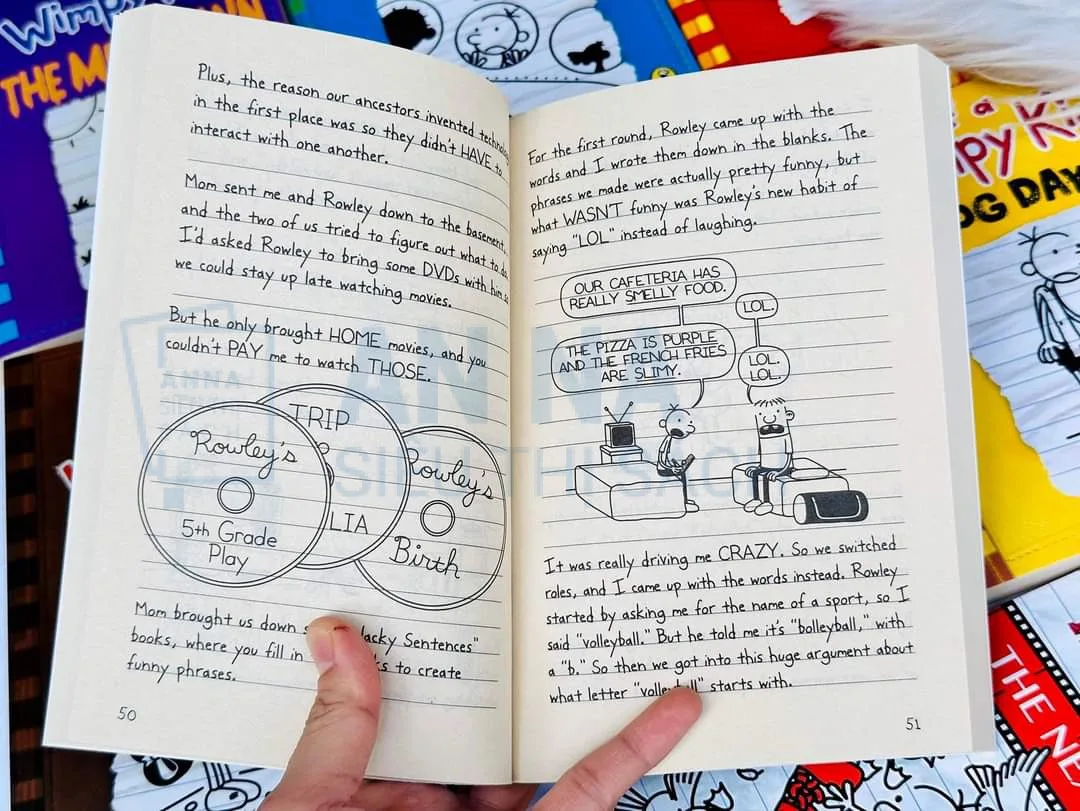 Wimpy
THE M
Plus, the reason our ancestors invented
in the first place was so they didn't HAVE to
interact with one another.
Mom sent me and Rowley down to the basement,
and the two of us tried to figure out what to do.
I'd asked Rowley to bring some DVDs with him so
we could stay up late watching movies.
But he only brought HOME movies, and you
couldn't PAY me to watch THOSE.
Rowley's
5th Grade
Play
TRIP
LIA
Rowley's
Birth
Mom brought us down
Sentences"
books, where you fill in
to create
funny phrases.
50
For the first round, Rowley came up with the
words and I wrote them down in the blanks. The
phrases we made were actually pretty funny, but
what WASN'T funny was Rowley's new habit of
saying "LOL" instead of laughing.
OUR CAFETERIA HAS
REALLY SMELLY FOOD.
LOL.
THE PIZZA IS PURPLE
AND THE FRENCH FRIES
ARE SLIMY.
LOL.
LOL.
It was really driving me CRAZY. So we switched
roles, and I came up with the words instead. Rowley
started by asking me for the name of a sport, so I
said "volleyball." But he told me it's "bolleyball," with
a "b." So then we got into this huge argument about
what letter "volleyball" starts with.
51
ANNA
SIÊU THỊ SÁCH
ANNA
a
py Ki
OG DAY
THE NE